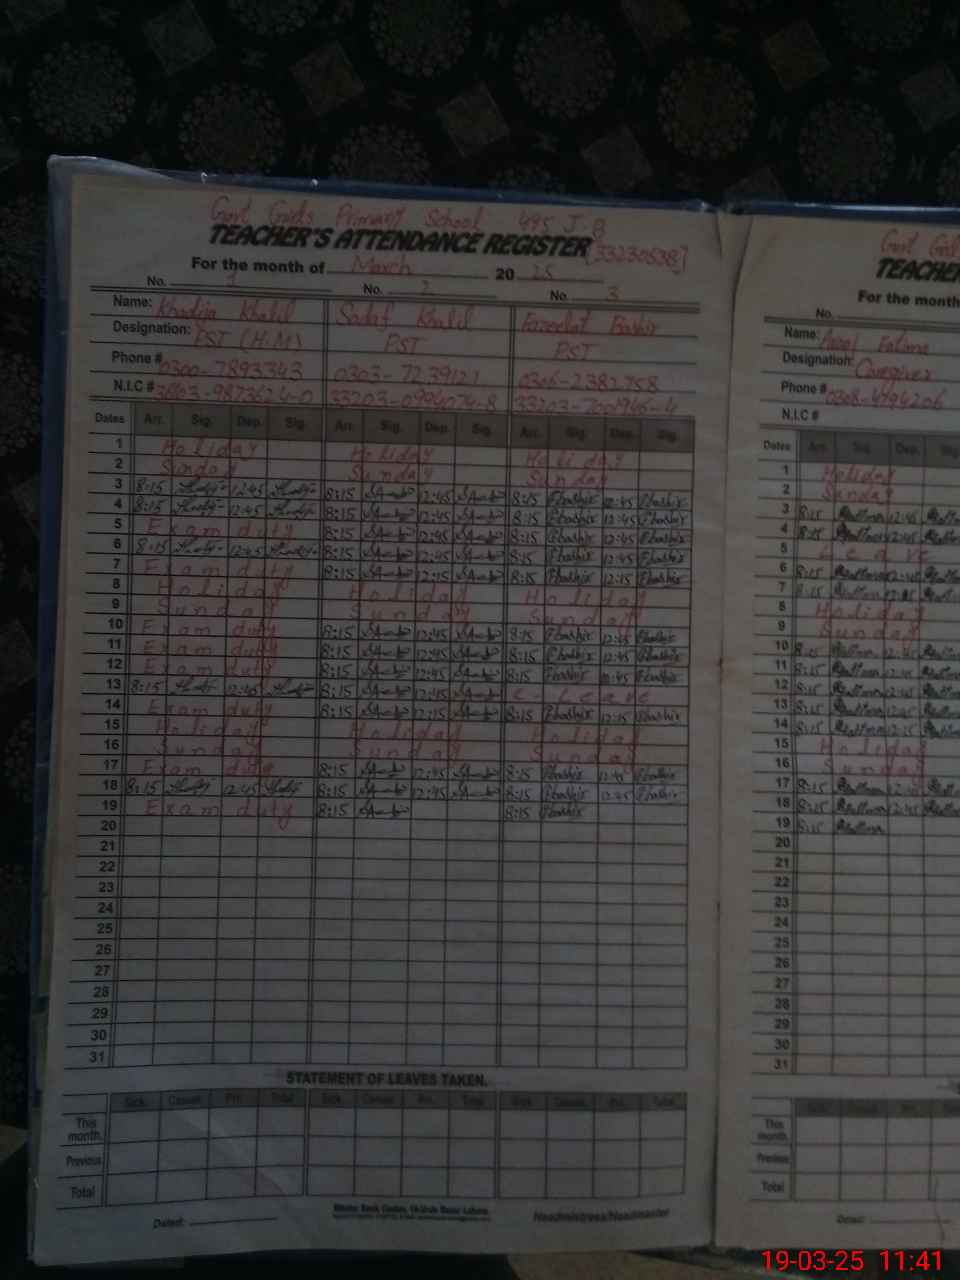 Govt Girls Primary School 495 J-B
TEACHER'S ATTENDANCE REGISTER [33230538]
For the month of March 20 25
No. 1 No. 2 No. 3
Name: Khadija Khalil Sadaf Khalil Fazeelat Bashir
Designation: PST (H.M) PST PST
Phone # 0300-7893343 0303-7239121 0306-2382758
N.I.C #
Dates Arr. Sig. Dep. Sig. Arr. Sig. Dep. Sig. Arr. Sig. Dep. Sig.
1 Holiday Holiday Holiday
2 Sunday Sunday Sunday
3 8:15 12:45 8:15 12:45 8:15 12:45
4 8:15 12:45 8:15 12:45 8:15 12:45
5 Exam duty 8:15 12:45 8:15 12:45
6 8:15 12:45 8:15 12:45 8:15 12:45
7 Exam duty 8:15 12:15 8:15 12:15
8 Holiday Holiday Holiday
9 Sunday Sunday Sunday
10 Exam duty 8:15 12:45 8:15 12:45
11 Exam duty 8:15 12:45 8:15 12:45
12 Exam duty 8:15 12:45 8:15
13 8:15 12:45 8:15 12:45 C-Leave
14 Exam duty 8:15 12:15 8:15 12:15
15 Holiday Holiday Holiday
16 Sunday Sunday Sunday
17 Exam duty 8:15 12:45 8:15 12:45
18 8:15 12:45 8:15 12:45 8:15 12:45
19 Exam duty 8:15 8:15
20
21
22
23
24
25
26
27
28
29
30
31
STATEMENT OF LEAVES TAKEN.
Sick. Casual. Pri. Total Sick. Casual. Pri. Total Sick. Casual. Pri. Total
This month.
Previous
Total
Dated: Headmistress/Headmaster
Govt Girls
TEACHER
For the month
No.
Name: Fatima
Designation: Caregiver
Phone # 0308-4794206
N.I.C #
Dates Arr. Sig. Dep. Sig
1 Holiday
2 Sunday
3 8:15 12:45
4 8:15 12:45
5 Leave
6 8:15 12:45
7 8:15
8 Holiday
9 Sunday
10 8:15
11 8:15 12:45
12 8:15 12:45
13 8:15 12:45
14 8:15 12:15
15 Holiday
16 Sunday
17 8:15 12:45
18 8:15 12:45
19 8:15
20
21
22
23
24
25
26
27
28
29
30
31
This month.
Previous
Total
Dated:
19-03-25 11:41